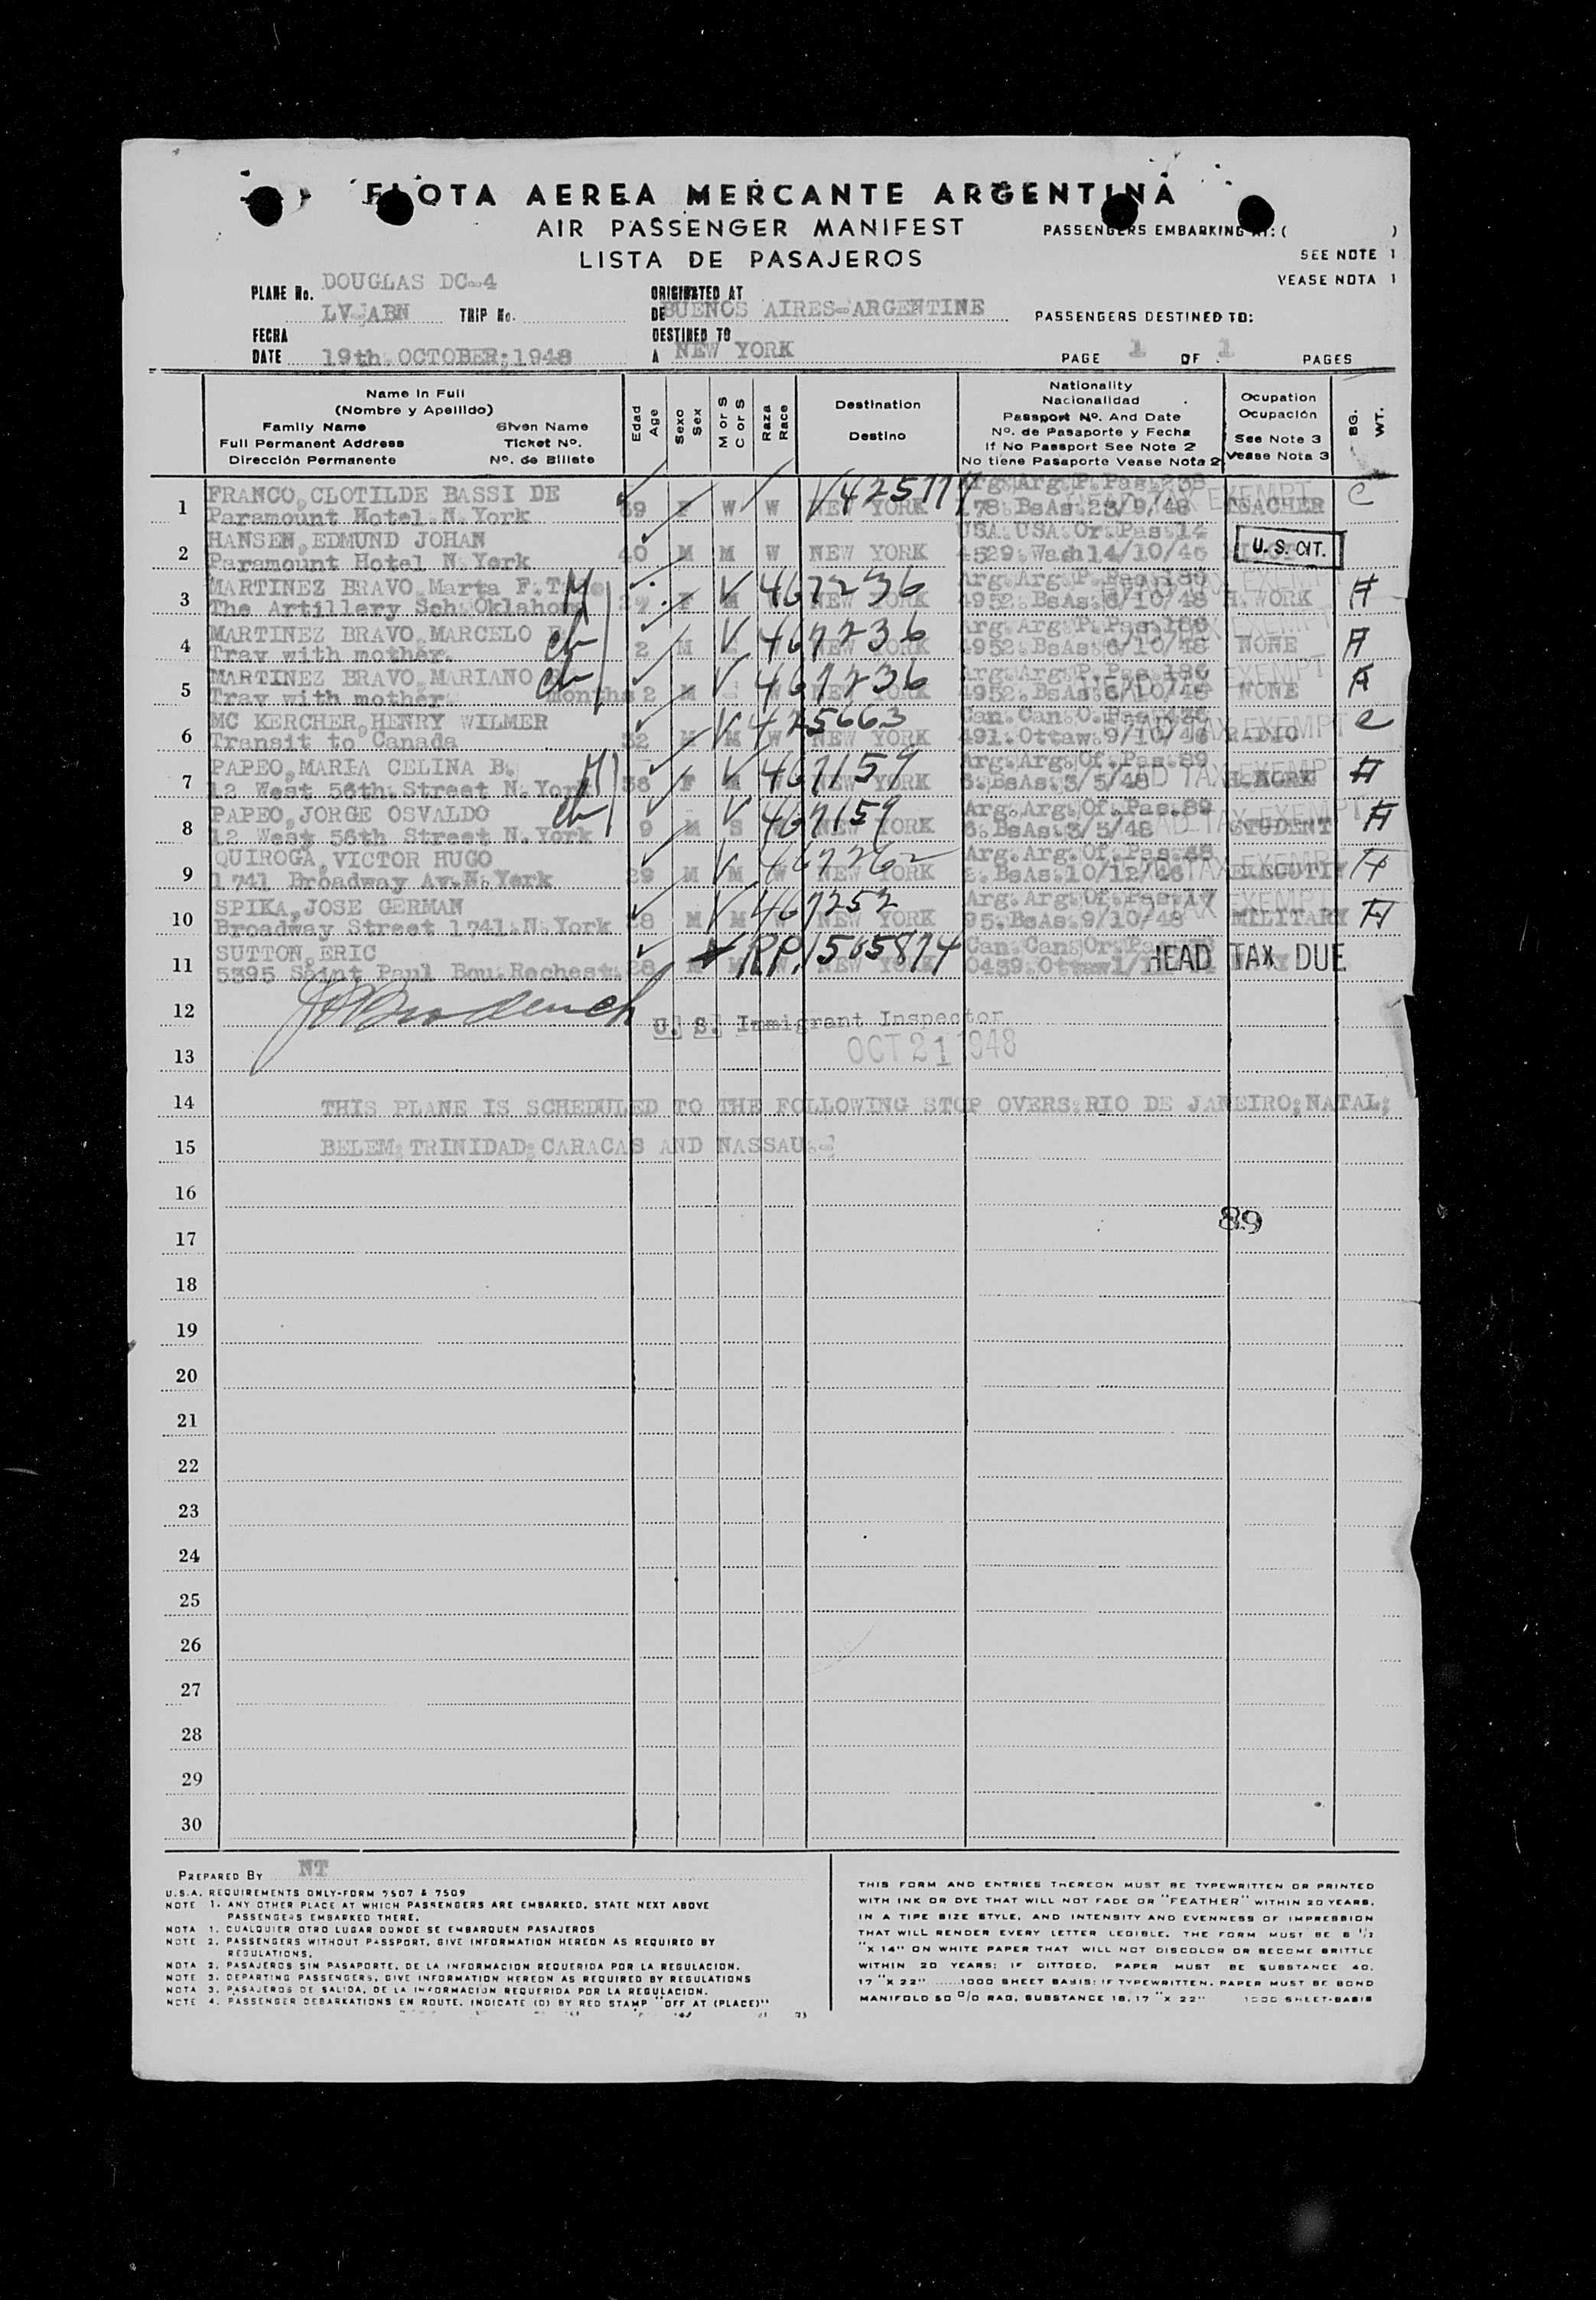 FLOTA AEREA MERCANTE ARGENTINA
AIR PASSENGER MANIFEST
LISTA DE PASAJEROS
PASSENGERS EMBARKING AT: ( )
SEE NOTE 1
VEASE NOTA 1
PLANE No. DOUGLAS DC-4
LV-ABN TRIP No.
ORIGINATED AT
DE BUENOS AIRES-ARGENTINE
PASSENGERS DESTINED TO:
FECHA
DATE 19th OCTOBER; 1948
DESTINED TO
A NEW YORK
PAGE 1 OF 1 PAGES
Name in Full
(Nombre y Apellido)
Family Name Given Name
Full Permanent Address Ticket Nº.
Dirección Permanente Nº. de Billete
Edad Age
Sexo Sex
M or S C or S
Raza Race
Destination
Destino
Nationality
Nacionalidad
Passport Nº. And Date
Nº. de Pasaporte y Fecha
If No Passport See Note 2
No tiene Pasaporte Vease Nota 2
Ocupation
Ocupación
See Note 3
Vease Nota 3
BG. WT.
1 FRANCO, CLOTILDE BASSI DE
Paramount Hotel N. York F W W NEW YORK 78. BsAs. 23/9/48 TEACHER C
2 HANSEN, EDMUND JOHAN USA. USA. Or. Pas. 14
Paramount Hotel N. York 40 M M W NEW YORK 4529. Wash 14/10/46 U. S. CIT.
3 MARTINEZ BRAVO, Marta F. T. M Arg. Arg. P. Pas. 186
The Artillery Sch. Oklahom F M 467236 NEW YORK 4952. BsAs. 6/10/48 H. WORK H
4 MARTINEZ BRAVO, MARCELO ch Arg. Arg. P. Pas. 186
Trav with mother. 2 M 467236 NEW YORK 4952. BsAs. 6/10/48 NONE H
5 MARTINEZ BRAVO, MARIANO ch Arg. Arg. P. Pas. 186
Trav with mother. months 2 M 467236 4952. BsAs. 6/10/48 NONE
6 MC KERCHER, HENRY WILMER 425663 Can. Can. O. Pas.
Transit to Canada 32 M M W NEW YORK 491. Ottaw. 9/10/46 RADIO C
7 PAPEO, MARIA CELINA B. M Arg. Arg. Of. Pas. 89
12 West 56th. Street N. York F M 467159 NEW YORK 6. BsAs. 3/5/48 H. WORK H
8 PAPEO, JORGE OSVALDO ch Arg. Arg. Of. Pas. 89
12 West 56th Street N. York 9 M S 467159 NEW YORK 6. BsAs. 3/5/48 STUDENT H
9 QUIROGA, VICTOR HUGO 467262 Arg. Arg. Of. Pas.
1741 Broadway Av. N. York 29 M M W NEW YORK BsAs. 10/12/46 EXECUTIV H
10 SPIKA, JOSE GERMAN 467252 Arg. Arg. Of. Pas. 17
Broadway Street 1741. N. York M M W NEW YORK 95. BsAs. 9/10/48 MILITARY H
11 SUTTON, ERIC RP. 1505874 HEAD TAX DUE
5395 Saint Paul Bou. Rochest. 28 NEW YORK
12 U. S. Immigrant Inspector
13 OCT 21 1948
14 THIS PLANE IS SCHEDULED TO THE FOLLOWING STOP OVERS: RIO DE JANEIRO; NATAL;
15 BELEM; TRINIDAD; CARACAS AND NASSAU.-
16
89
17
18
19
20
21
22
23
24
25
26
27
28
29
30
PREPARED BY NT
U.S.A. REQUIREMENTS ONLY-FORM 7507 & 7509
NOTE 1. ANY OTHER PLACE AT WHICH PASSENGERS ARE EMBARKED, STATE NEXT ABOVE
PASSENGERS EMBARKED THERE.
NOTA 1. CUALQUIER OTRO LUGAR DONDE SE EMBARQUEN PASAJEROS
NOTE 2. PASSENGERS WITHOUT PASSPORT, GIVE INFORMATION HEREON AS REQUIRED BY
REGULATIONS.
NOTA 2. PASAJEROS SIN PASAPORTE, DE LA INFORMACION REQUERIDA POR LA REGULACION.
NOTE 3. DEPARTING PASSENGERS, GIVE INFORMATION HEREON AS REQUIRED BY REGULATIONS
NOTA 3. PASAJEROS DE SALIDA, DE LA INFORMACION REQUERIDA POR LA REGULACION.
NOTE 4. PASSENGER DEBARKATIONS EN ROUTE, INDICATE (D) BY RED STAMP "OFF AT (PLACE)"
THIS FORM AND ENTRIES THEREON MUST BE TYPEWRITTEN OR PRINTED
WITH INK OR DYE THAT WILL NOT FADE OR "FEATHER" WITHIN 20 YEARS,
IN A TIPE SIZE STYLE, AND INTENSITY AND EVENNESS OF IMPRESSION
THAT WILL RENDER EVERY LETTER LEGIBLE. THE FORM MUST BE 8 1/2
"X 14" ON WHITE PAPER THAT WILL NOT DISCOLOR OR BECOME BRITTLE
WITHIN 20 YEARS; IF DITTOED, PAPER MUST BE SUBSTANCE 40,
17 "X 22" ......1000 SHEET BASIS: IF TYPEWRITTEN, PAPER MUST BE BOND
MANIFOLD 50 0/0 RAG, SUBSTANCE 18, 17 "X 22" 1000 SHEET-BASIS